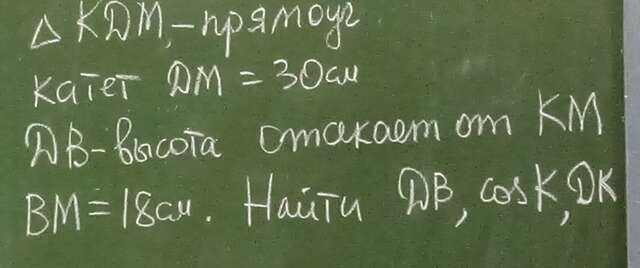 △ KDM, - прямоуг
катет DM = 30см
DB - высота отсекает от KM
BM = 18см. Найти DB, cosK, DK